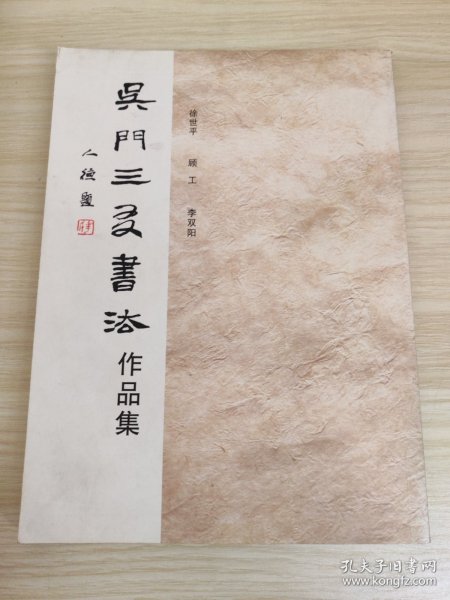 吳門三友書法
作品集
人德題
徐世平 顾工 李双阳
孔夫子旧书网
www.kongfz.com